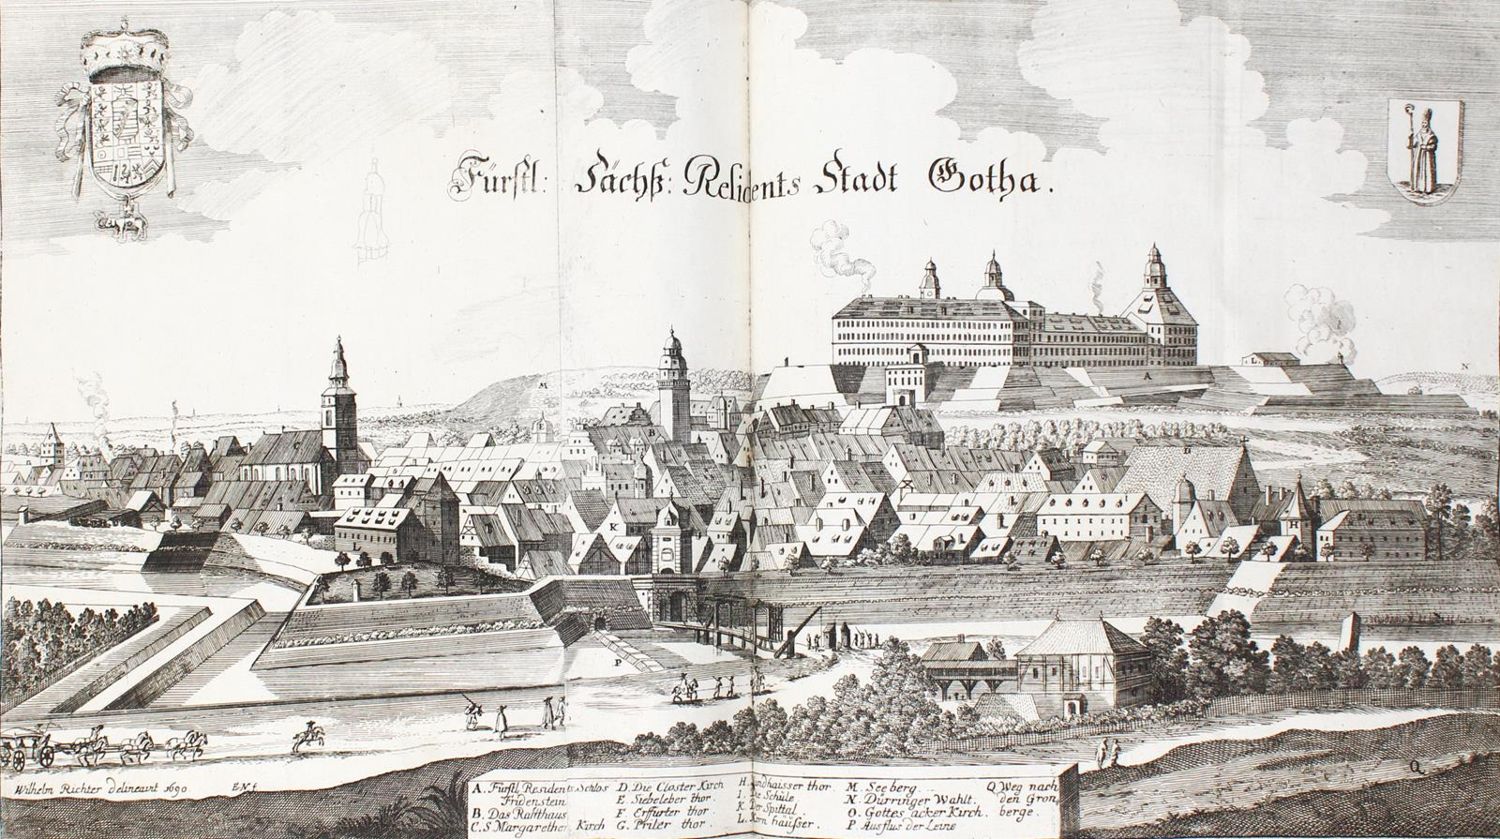 Fürstl: Sächß: Residents Stadt Gotha.
Wilhelm Richter delineavit 1690
A. Fürstl Residents Schlos
Fridenstein
B. Das Rahthaus
C. S Margarethen Kirch
D. Die Closter Kirch
E. Siebeleber thor.
F. Erffurter thor.
G. Priler thor.
thor.
I. Die Schule
K. Der Spittal
L. Korn häuser.
M. Seeberg
N. Durringer Wahlt.
O. Gottes acker Kirch.
P. Ausflus der Leine
Q Weg nach
den Gron,
berge.
M
N
A
B
D
K
L
P
Q